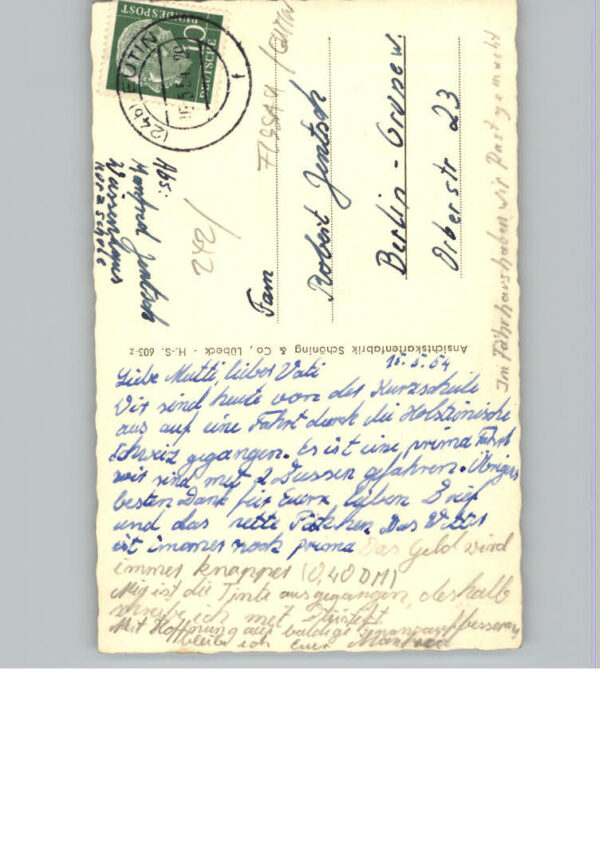 DEUTSCHE
BUNDESPOST
10
(24b) EUTIN
FISSAU / EUTIN
1242
Abs:
Manfred Jentsch
Waisenhaus
Kurzschule
Fam
Robert Jentsch
Berlin - Grunew.
23
Im Fährhaus haben wir Rast gemacht
Ansichtskartenfabrik Schöning & Co., Lübeck - H.-S. 603-z
15.5.54
Liebe Mutti, lieber Vati
Wir sind heute von der Kurzschule
aus auf eine Fahrt durch die Holsteinische
Schweiz gegangen. Es ist eine prima Fahrt
wir sind mit 2 Bussen gefahren. Übrigens
besten Dank für Euren lieben Brief
und das nette Päckchen Das Wetter
ist immer noch prima Das Geld wird
immer knapper (0,40 DM)
Mir ist die Tinte ausgegangen, deshalb
schreibe ich mit
Mit Hoffnung auf baldige Finanzaufbesserung
bleibe ich Euer Manfred